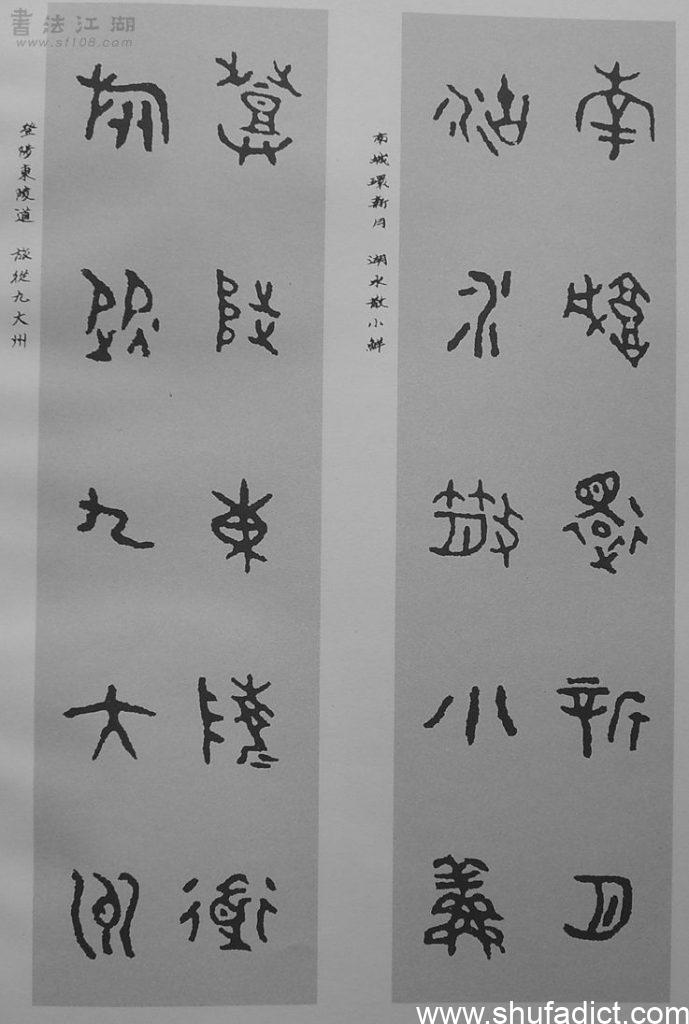 書法江湖
www.sf108.com
南城環新月
湖水散小鮮
南城環新月 湖水散小鮮
登陟東陵道
旅從九大州
登陟東陵道 旅從九大州
www.shufadict.com